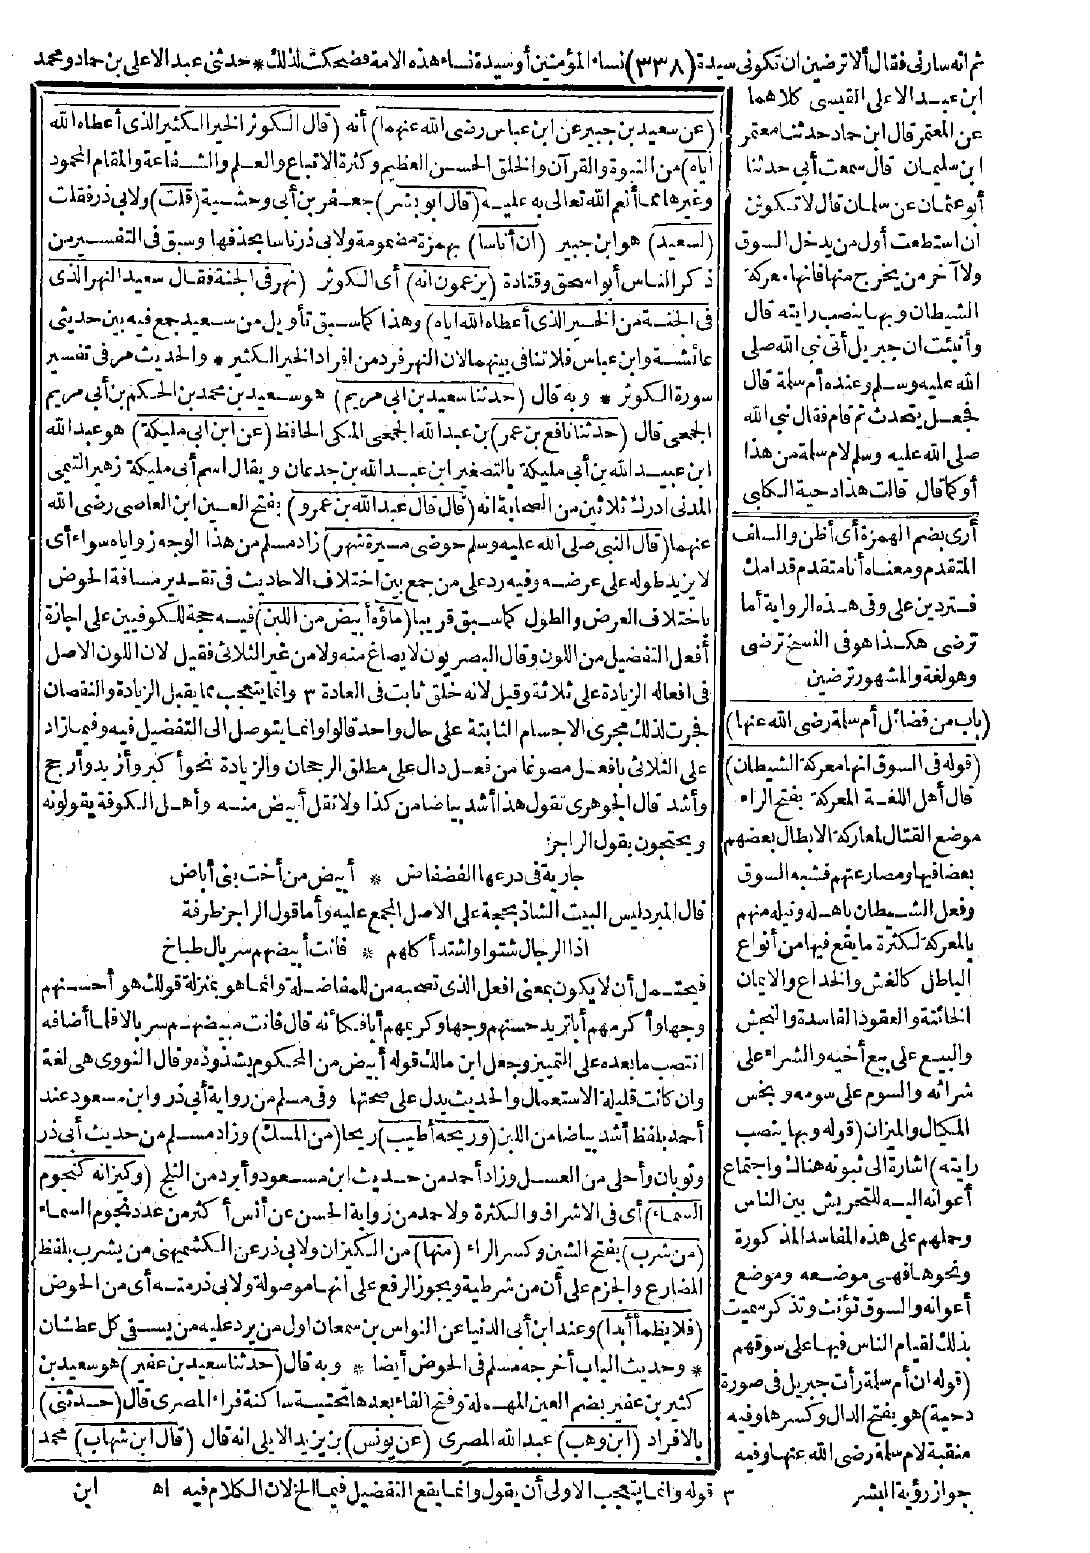 ثم انه سارنى فقال ألا ترضين ان تكونى سيدة (٣٣٨) نساء المؤمنين أو سيدة نساء هذه الامة فضحكت لذلك * حدثنى عبد الاعلى بن حماد ومحمد
ابن عبد الاعلى القيسى كلاهما
عن المعتمر قال ابن حماد حدثنا معتمر
ابن سليمان قال سمعت أبى حدثنا
أبو عثمان عن سلمان قال لا تكونن
ان استطعت أول من يدخل السوق
ولا آخر من يخرج منها فانها معركة
الشيطان وبها ينصب رايته قال
وأنبئت ان جبريل أتى نبى الله صلى
الله عليه وسلم وعنده أم سلمة قال
فجعل يتحدث ثم قام فقال نبى الله
صلى الله عليه وسلم لام سلمة من هذا
أو كما قال قالت هذا دحية الكلبى
أرى بضم الهمزة أى أظن والسلف
المتقدم ومعناه أنا متقدم قدامك
فتردين على وفى هذه الرواية أما
ترضى هكذا هو فى النسخ ترضى
وهو لغة والمشهور ترضين
(باب من فضائل أم سلمة رضى الله عنها)
(قوله فى السوق انها معركة الشيطان)
قال أهل اللغة المعركة بفتح الراء
موضع القتال لمعاركة الابطال بعضهم
بعضا فيها ومصارعتهم فشبه السوق
وفعل الشيطان باهله ونيله منهم
بالمعركة لكثرة ما يقع فيها من أنواع
الباطل كالغش والخداع والايمان
الخائنة والعقود الفاسدة والنجش
والبيع على بيع أخيه والشراء على
شرائه والسوم على سومه وبخس
المكيال والميزان (قوله وبها ينصب
رايته) اشارة الى ثبوته هناك واجتماع
أعوانه اليه للتحريش بين الناس
وحملهم على هذه المفاسد المذكورة
ونحوها فهى موضعه وموضع
أعوانه والسوق تؤنث وتذكر سميت
بذلك لقيام الناس فيها على سوقهم
(قوله ان أم سلمة رأت جبريل فى صورة
دحية) هو بفتح الدال وكسرها وفيه
منقبة لام سلمة رضى الله عنها وفيه
جواز رؤية البشر
(عن سعيد بن جبير عن ابن عباس رضى الله عنهما) أنه (قال الكوثر الخير الكثير الذى أعطاه الله
اياه) من النبوة والقرآن والخلق الحسن العظيم وكثرة الاتباع والعلم والشفاعة والمقام المحمود
وغيرها مما أنعم الله تعالى به عليه (قال ابو بشر) جعفر بن أبى وحشية (قلت) ولابى ذر فقلت
(لسعيد) هو ابن جبير (ان أناسا) بهمزة مضمومة ولابى ذر ناسا بحذفها وسبق فى التفسير من
ذكر الناس أبو اسحق وقتادة (يزعمون انه) أى الكوثر (نهر فى الجنة فقال سعيد النهر الذى
فى الجنة من الخير الذى أعطاه الله اياه) وهذا كما سبق تأويل من سعيد جمع فيه بين حديثى
عائشة وابن عباس فلا تنافى بينهما لان النهر فرد من افراد الخير الكثير * والحديث مر فى تفسير
سورة الكوثر * وبه قال (حدثنا سعيد بن ابى مريم) هو سعيد بن محمد بن الحكم بن أبى مريم
الجمحى قال (حدثنا نافع بن عمر) بن عبد الله الجمحى المكى الحافظ (عن ابن ابى مليكة) هو عبد الله
ابن عبيد الله بن أبى مليكة بالتصغير ابن عبد الله بن جدعان ويقال اسم أبى مليكة زهير التيمى
المدنى ادرك ثلاثين من الصحابة انه (قال قال عبد الله بن عمرو) بفتح العين ابن العاصى رضى الله
عنهما (قال النبى صلى الله عليه وسلم حوضى مسيرة شهر) زاد مسلم من هذا الوجه زواياه سواء أى
لا يزيد طوله على عرضه وفيه رد على من جمع بين اختلاف الاحاديث فى تقدير مسافة الحوض
باختلاف العرض والطول كما سبق قريبا (ماؤه أبيض من اللبن) فيه حجة للكوفيين على اجازة
أفعل التفضيل من اللون وقال البصريون لا يصاغ منه ولا من غير الثلاثى فقيل لان اللون الاصل
فى افعاله الزيادة على ثلاثة وقيل لانه خلق ثابت فى العادة ٣ وانما يتعجب مما يقبل الزيادة والنقصان
فجرت لذلك مجرى الاجسام الثابتة على حال واحد قالوا وانما يتوصل الى التفضيل فيه وفيما زاد
على الثلاثى بافعل مصوغا من فعل دال على مطلق الرجحان والزيادة نحو أكبر وأزيد وأرجح
وأشد قال الجوهرى تقول هذا أشد بياضا من كذا ولا تقل أبيض منه وأهل الكوفة يقولونه
ويحتجون بقول الراجز
جارية فى درعها الفضفاض * أبيض من أخت بنى أباض
قال المبرد ليس البيت الشاذ بحجة على الاصل المجمع عليه وأما قول الراجز طرفة
اذا الرجال شتوا واشتد أكلهم * فانت أبيضهم سربال طباخ
فيحتمل أن لا يكون بمعنى افعل الذى تصحبه من للمفاضلة وانما هو بمنزلة قولك هو أحسنهم
وجها وأكرمهم أبا تريد حسنهم وجها وكريمهم أبا فكأنه قال فانت مبيضهم سربالا فلما أضافه
انتصب ما بعده على التمييز وجعل ابن مالك قوله أبيض من المحكوم بشذوذه وقال النووى هى لغة
وان كانت قليلة الاستعمال والحديث يدل على صحتها وفى مسلم من رواية أبى ذر وابن مسعود عند
أحمد بلفظ أشد بياضا من اللبن (وريحه أطيب) ريحا (من المسك) وزاد مسلم من حديث أبى ذر
وثوبان وأحلى من العسل وزاد أحمد من حديث ابن مسعود وأبرد من الثلج (وكيزانه كنجوم
السماء) أى فى الاشراق والكثرة ولاحمد من رواية الحسن عن أنس أكثر من عدد نجوم السماء
(من شرب) بفتح الشين وكسر الراء (منها) من الكيزان ولابى ذر عن الكشميهنى من يشرب بلفظ
المضارع والجزم على أن من شرطية ويجوز الرفع على انها موصولة ولابى ذر منه أى من الحوض
(فلا يظمأ أبدا) وعند ابن أبى الدنيا عن النواس بن سمعان اول من يرد عليه من يسقى كل عطشان
* وحديث الباب أخرجه مسلم فى الحوض أيضا * وبه قال (حدثنا سعيد بن عفير) هو سعيد بن
كثير بن عفير بضم العين المهملة وفتح الفاء بعدها تحتية ساكنة فراء المصرى قال (حدثنى)
بالافراد (ابن وهب) عبد الله المصرى (عن يونس) بن يزيد الايلى انه قال (قال ابن شهاب) محمد
٣ قوله وانما يتعجب الاولى أن يقول وانما يقع التفضيل فيما الخ لان الكلام فيه اه ابن